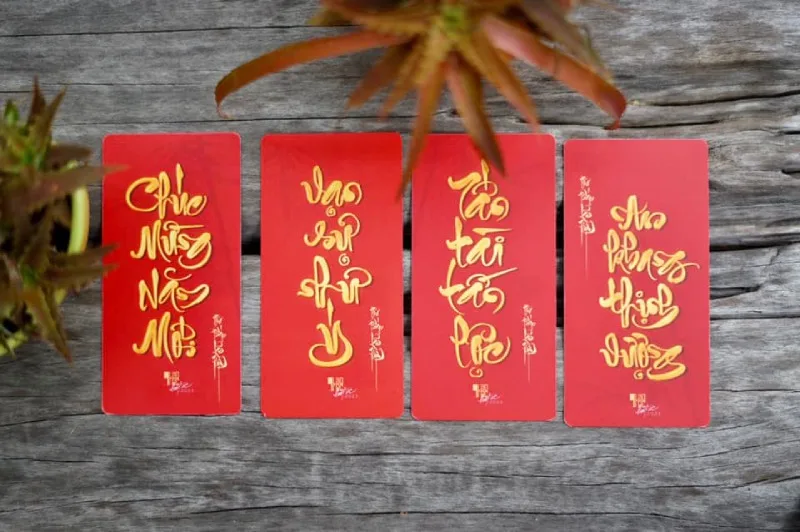 Chúc
Mừng
Năm
Mới
Vạn
sự
như
ý
Tấn
tài
tấn
lộc
An
khang
thịnh
vượng